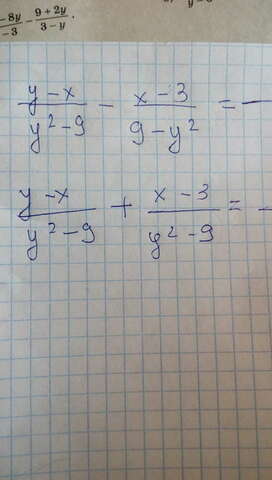 -8y/-3 - 9 + 2y/3 - y.
y - x/y² - 9 - x - 3/9 - y² = -
y - x/y² - 9 + x - 3/y² - 9 = -